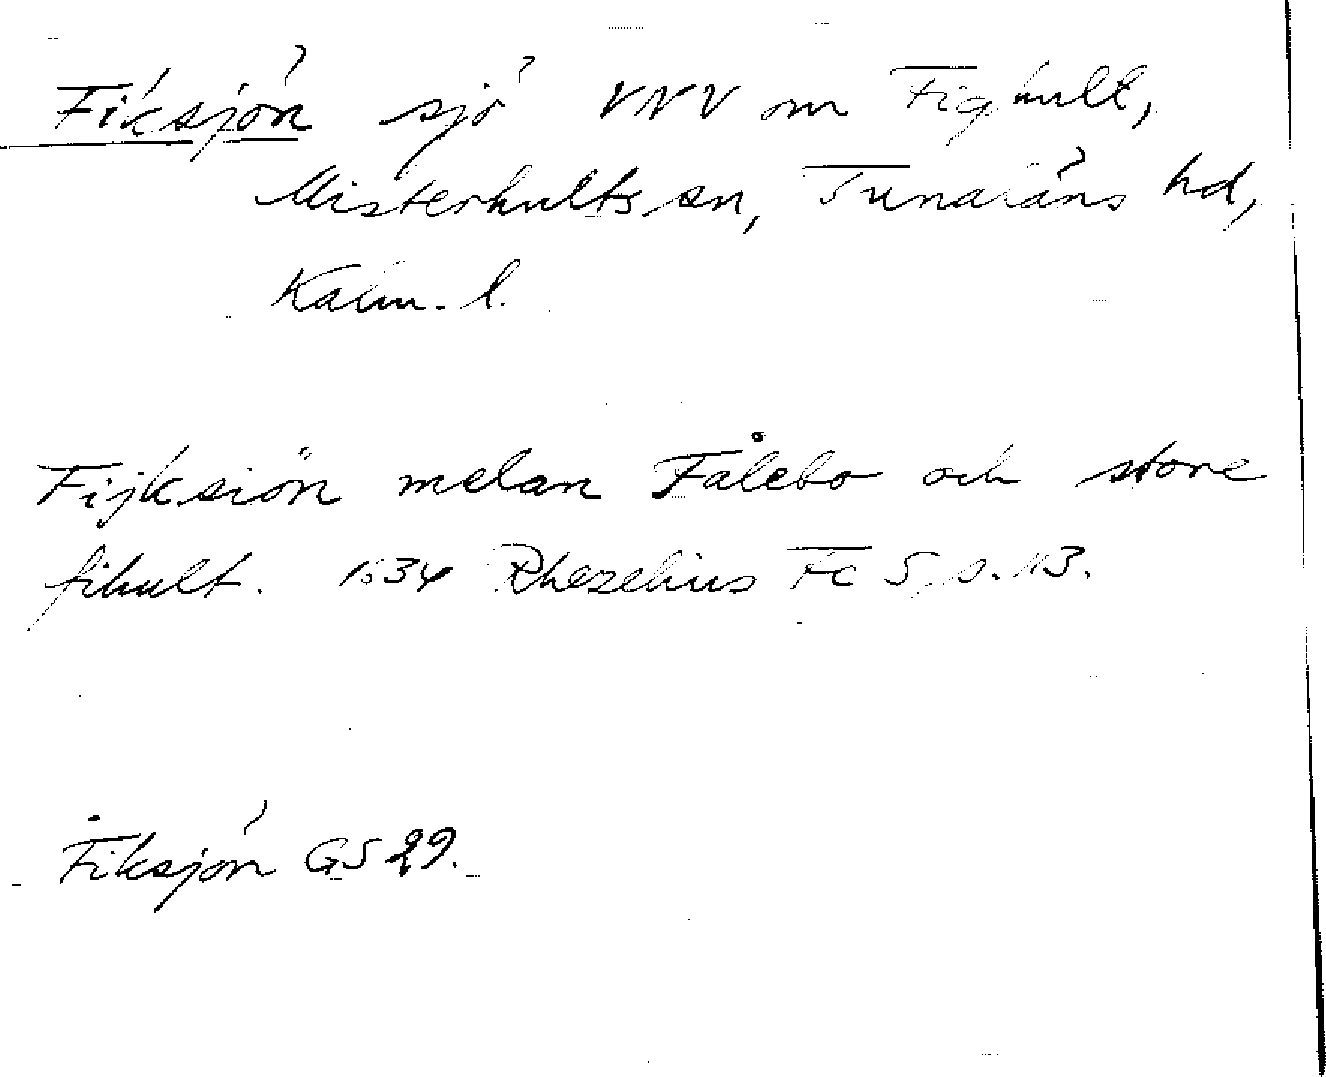 Fiksjön sjö VNV om Fighult,
Misterhults sn, Tunaläns hd,
Kalm. l.
Fijksiön melan Fålebo och store
fihult. 1634 Rhezelius Fc 5, s. 113.
Fiksjön GS 29.